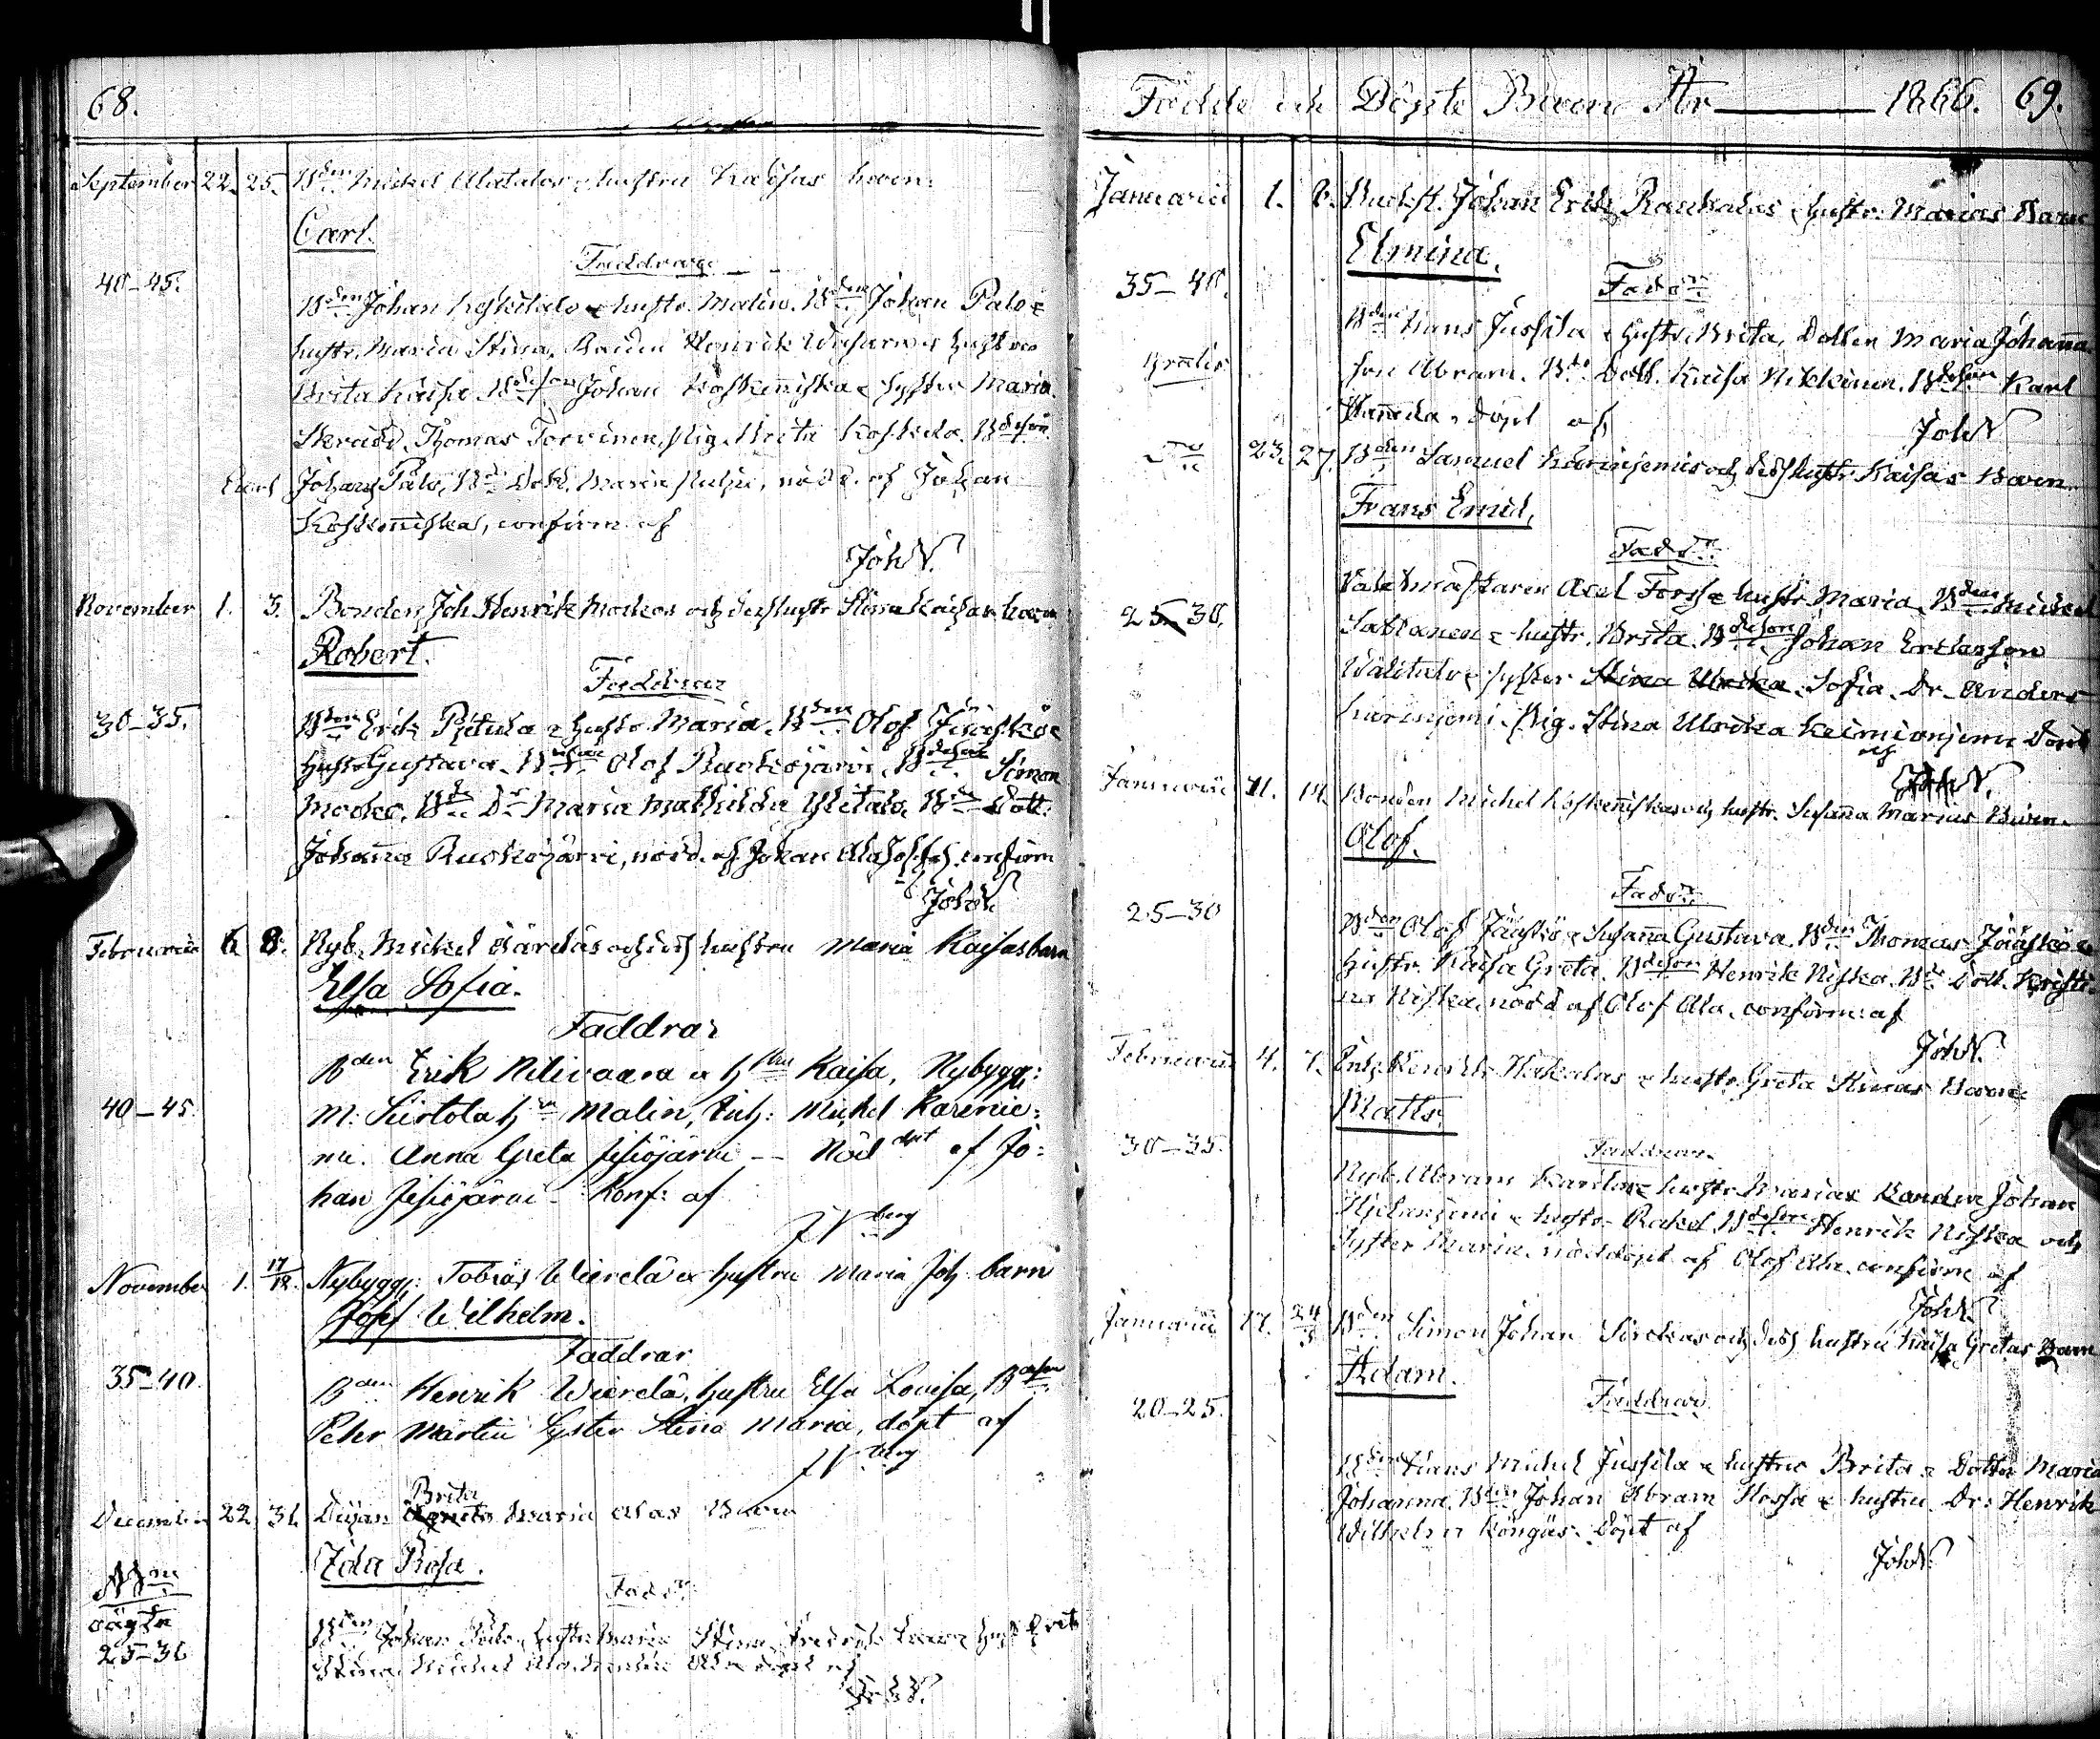 68.
September 22. 25. Bden Mickel Alatalos & hustru Kaisas barn:
Carl.
Faddrar
40–45.
Bden Johan Keskitalo & hustr. Malin. Bden Johan Palo &
hustr. Maria Stina, Henrik hustru
Brita Kaisa Bdeson Johan Koskenniska & Syster Maria.
Thomas Torvinen, Pig. Brita Bdeson
Johan Palo, Bde Dott. Maria nödd. af Johan
Koskenniska, confirm af
JohN.
November 1. 3. Bonden Joh Henrik Mockos och dess hustr Stina Kaisas barn
Robert.
Faddrar
30–35.
Bden Erik Pitula & hustr. Maria. Bden Olof Jääskö &
Hustr Gustava. Olof Ruokojärvi. Bdeson Simon
Mockos. Bde Dr Maria Mathilda Ylitalo, Bde Dott.
Johanna Ruokojärvi, nödd. af Johan confirm
JohN.
Februari 6 8. Nyb. Mickel Särelas och dess hustru Maria Kaisas barn
Elsa Sofia.
Faddrar
Bden Erik Nilivaara & hstru Kaisa, Nybygg:
40–45.
M: Siirtola h Malin, Inh: Mickel Kareni:
mi. Anna Greta Jesiöjärvi — Nöddpt af Jo:
han Jesiöjärvi – Konf: af
JWberg
November 1. 17/12. Nybygg: Tobias Wierelä & hustru Maria Joh barn
Josef Wilhelm.
Faddrar
35–40.
Bden Henrik Wierelä, hustru Elsa Lovisa, Bdeson
Pehr Martin Syster Stina Maria, döpt af
JWberg
Brita
December 22. 31. Pigan Maria Alas Barn
Ida Rosa.
Fadd:
25–30
Bden Johan Palo, hustr Maria Stina, Fredrik Greta
Stina, Mickel Ala, Ala döpt af
JohN.
Födde och Döpte Barn År 1866. 69.
Januarii 1. 6. Johan Erik Raukalas & hustr. Marias Barn
Elmina.
35–40.
Faddr:
Bden Hans Jussila & hustr. Brita, Dotten Maria Johanna
Gratis
son Abram. Bde Dott. Kaisa Nikkinen. Bdeson Karl
Hanneda, döpt af
JohN
Do 23. 27. Bden Samuel Karinjemis och dess hustr. Kaisas Barn.
Frans Emil,
Faddr:
Axel Forss & hustr Maria, Bden Mickel
25–30.
& hustr. Brita. Bdeson Johan Ericksson
Wälitalo & syster Sofia. Dr. Anders
Karinjemi. Pig. Stina Ulrika Keiniänjemi Döpt
af
JohN.
Januarii 11. 14. Bonden Michel Koskenniskas och hustr. Susanna Marias Barn.
Olof.
Faddr:
25–30
Bden Olof Jääskö & Susanna Gustava. Bden Thomas Jääskö &
Hustr. Kaisa Greta. Bdeson Henrik Niska. Bde Dott. Kristi-
na Niska, nödd af Olof Ala. confirm: af
JohN.
Februarii 4. 7. Inh. Henrik Hakalas & hustr. Greta Stinas Barn
Matts.
30–35.
Faddrar.
Nyb. Abram & hustr. Maria Johan
& hustr. Rakel Bdeson Henrik Niska och
Syster Maria. nöddöpt af Olof Ala. confirm af
JohN.
Januarii 17. 24/3 Bden Simon Johan Sirckas och dess hustru Kaisa Gretas Barn
Adam.
20–25.
Faddrar
Bden Hans Michel Jussila & hustru Brita & Dotter Maria
Johanna. Bden Johan Abram Hossa & hustru Dr: Henrik
Wilhelm Köngäs. Döpt af
JohN.